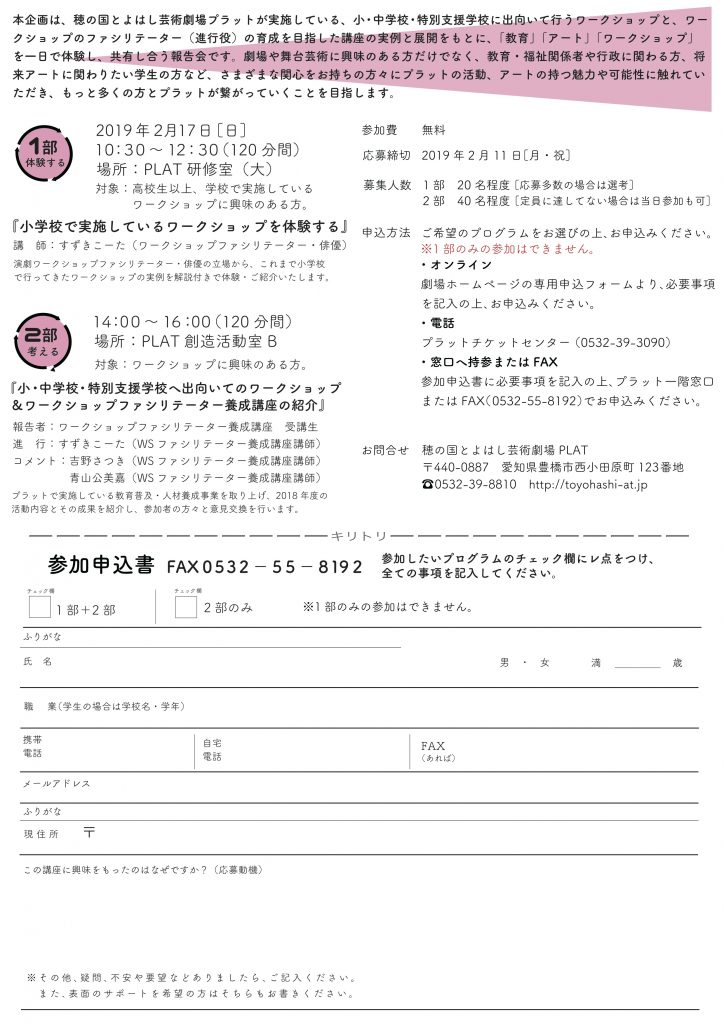 本企画は、穂の国とよはし芸術劇場プラットが実施している、小・中学校・特別支援学校に出向いて行うワークショップと、ワー
クショップのファシリテーター（進行役）の育成を目指した講座の実例と展開をもとに、「教育」「アート」「ワークショップ」
を一日で体験し、共有し合う報告会です。劇場や舞台芸術に興味のある方だけでなく、教育・福祉関係者や行政に関わる方、将
来アートに関わりたい学生の方など、さまざまな関心をお持ちの方々にプラットの活動、アートの持つ魅力や可能性に触れてい
ただき、もっと多くの方とプラットが繋がっていくことを目指します。
1部
体験する
2019年2月17日［日］
10:30～12:30（120分間）
場所：PLAT研修室（大）
対象：高校生以上、学校で実施している
ワークショップに興味のある方。
『小学校で実施しているワークショップを体験する』
講　師：すずきこーた（ワークショップファシリテーター・俳優）
演劇ワークショップファシリテーター・俳優の立場から、これまで小学校
で行ってきたワークショップの実例を解説付きで体験・ご紹介いたします。
2部
考える
14:00～16:00（120分間）
場所：PLAT創造活動室B
対象：ワークショップに興味のある方。
『小・中学校・特別支援学校へ出向いてのワークショップ
＆ワークショップファシリテーター養成講座の紹介』
報告者：ワークショップファシリテーター養成講座　受講生
進　行：すずきこーた（WSファシリテーター養成講座講師）
コメント：吉野さつき（WSファシリテーター養成講座講師）
青山公美嘉（WSファシリテーター養成講座講師）
プラットで実施している教育普及・人材養成事業を取り上げ、2018年度の
活動内容とその成果を紹介し、参加者の方々と意見交換を行います。
参加費　無料
応募締切　2019年2月11日［月・祝］
募集人数　1部　20名程度［応募多数の場合は選考］
2部　40名程度［定員に達してない場合は当日参加も可］
申込方法　ご希望のプログラムをお選びの上、お申込みください。
※1部のみの参加はできません。
・オンライン
劇場ホームページの専用申込フォームより、必要事項
を記入の上、お申込みください。
・電話
プラットチケットセンター（0532-39-3090）
・窓口へ持参またはFAX
参加申込書に必要事項を記入の上、プラット一階窓口
またはFAX（0532-55-8192）でお申込みください。
お問合せ　穂の国とよはし芸術劇場PLAT
〒440-0887　愛知県豊橋市西小田原町123番地
☎0532-39-8810　http://toyohashi-at.jp
キリトリ
参加申込書　FAX0532－55－8192
参加したいプログラムのチェック欄にレ点をつけ、
全ての事項を記入してください。
チェック欄
1部＋2部
チェック欄
2部のみ
※1部のみの参加はできません。
ふりがな
氏　名
男　・　女　　満　　歳
職　業（学生の場合は学校名・学年）
携帯
電話
自宅
電話
FAX
（あれば）
メールアドレス
ふりがな
現住所　〒
この講座に興味をもったのはなぜですか？（応募動機）
※その他、疑問、不安や要望などありましたら、ご記入ください。
また、表面のサポートを希望の方はそちらもお書きください。